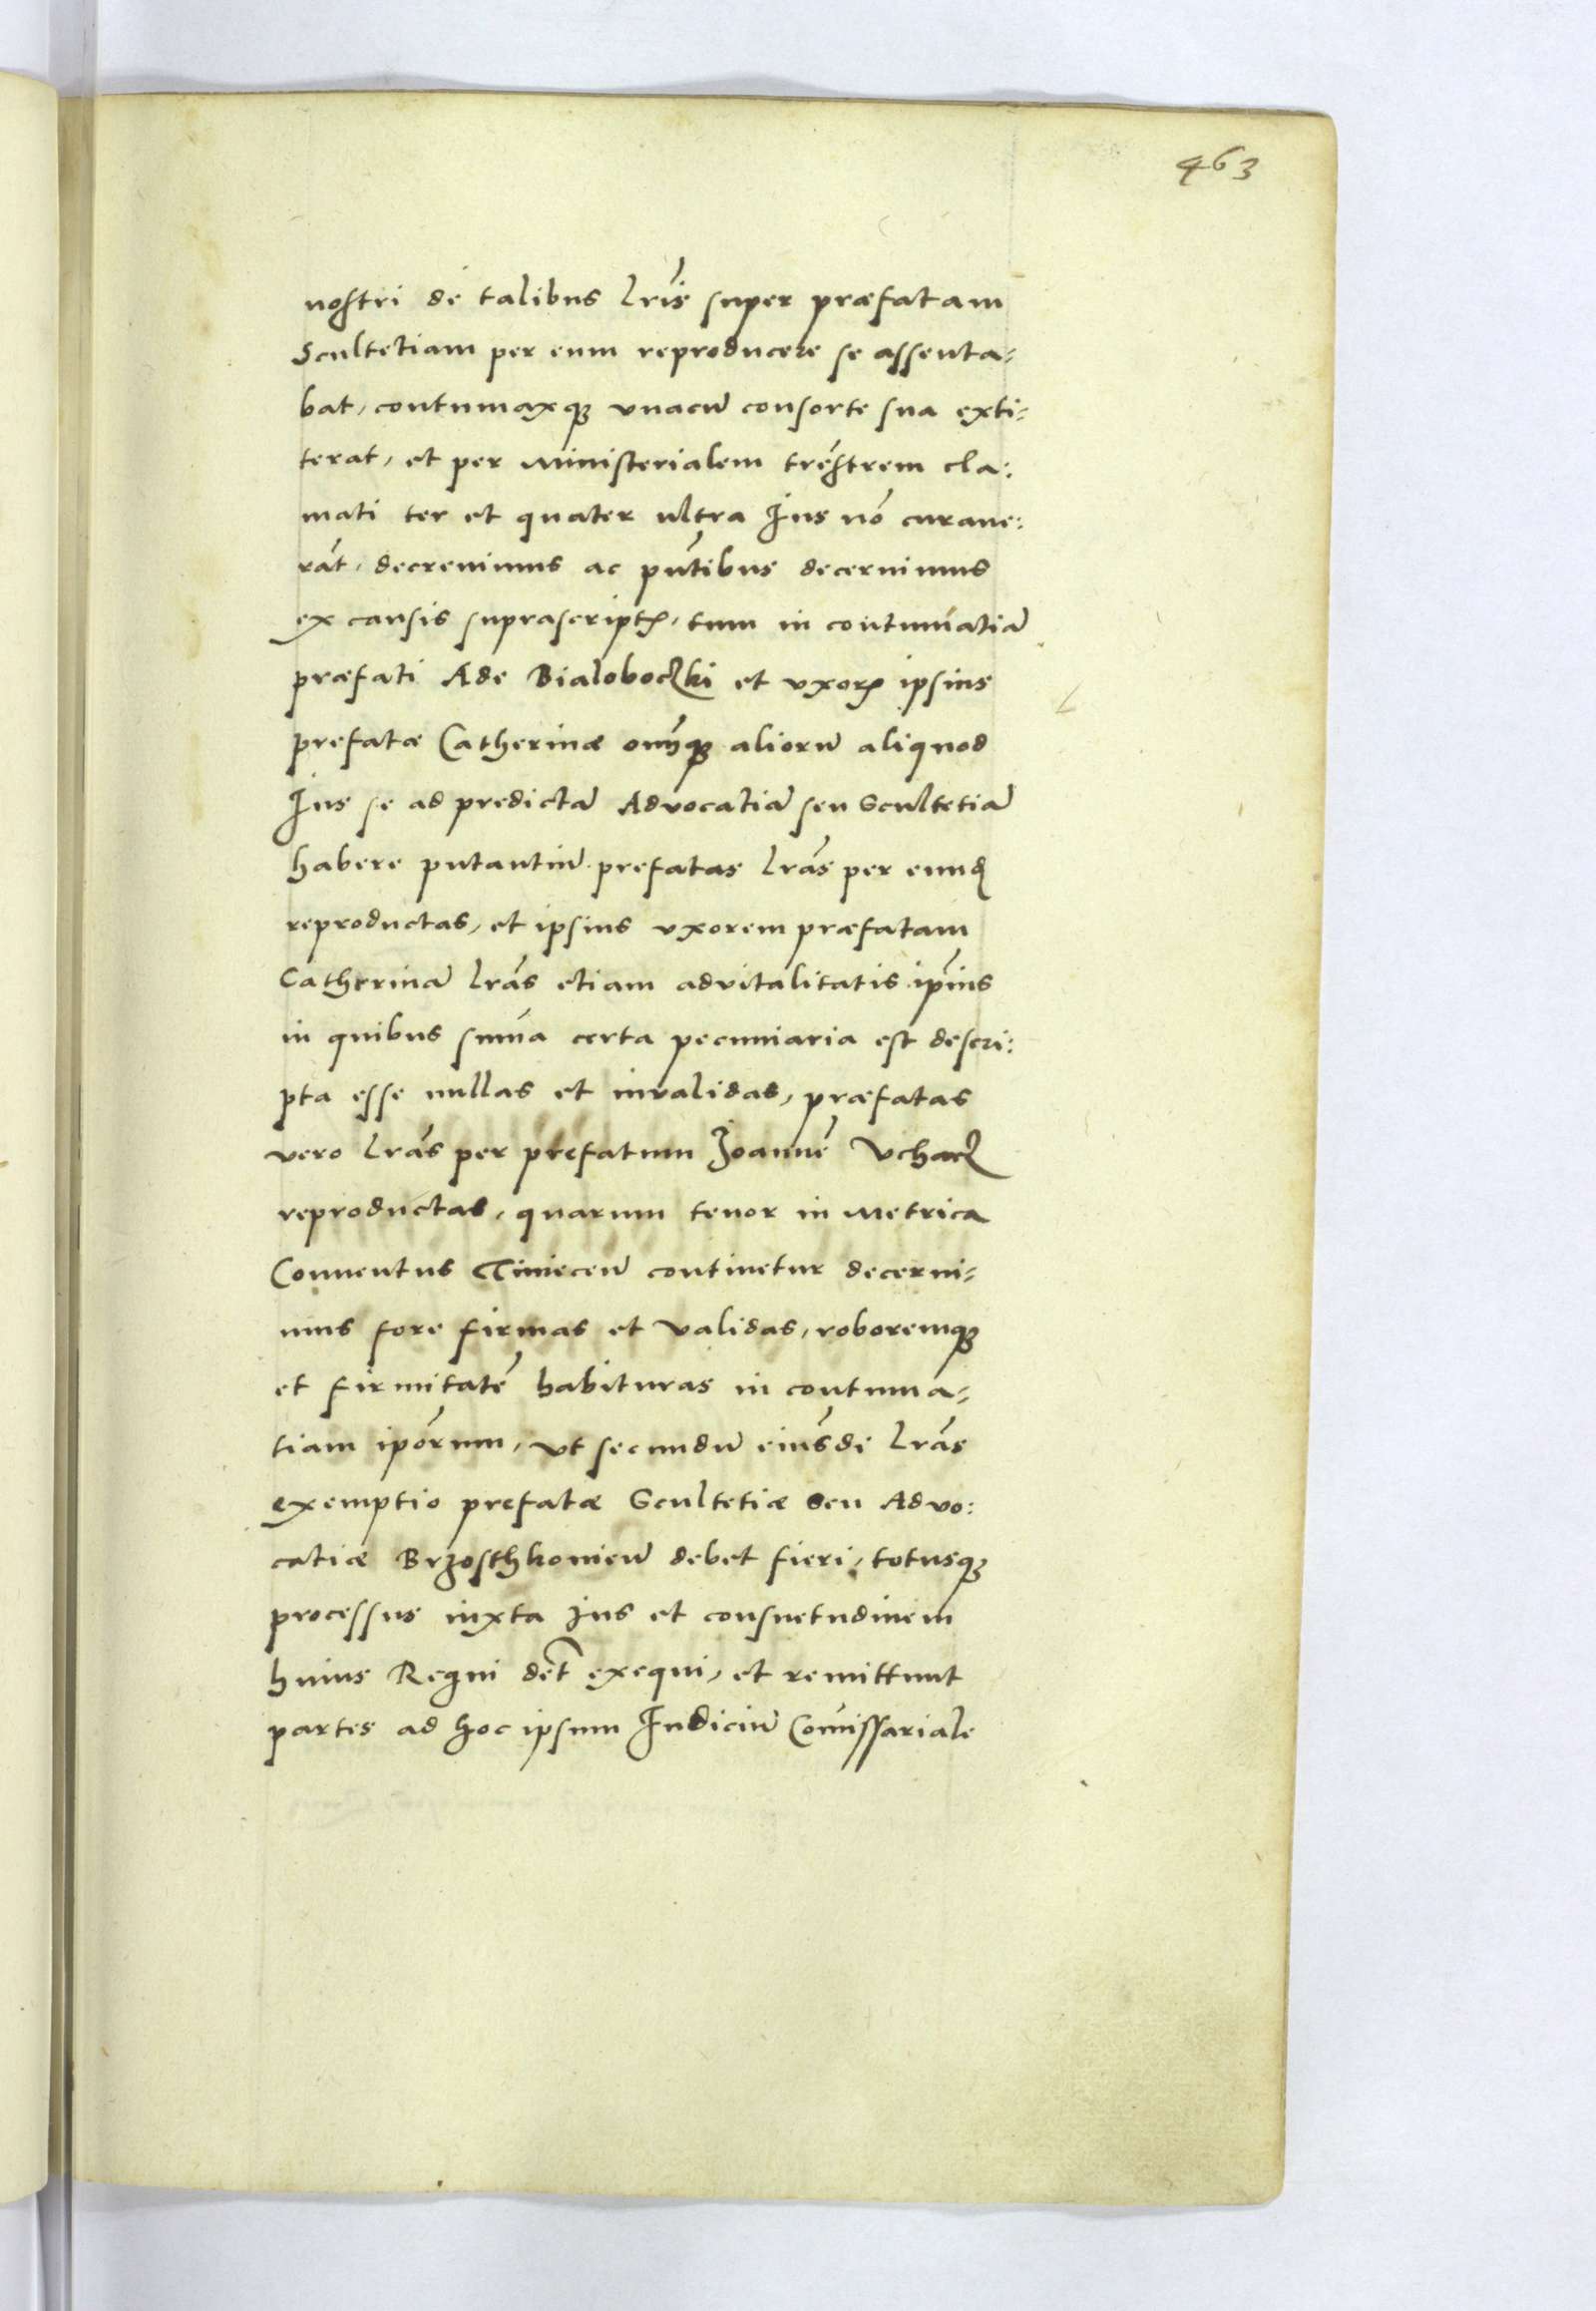 463
nostri de talibus l͠ris super præfatam
Scultetiam per eum reproducere se assenta⸗
bat, contumaxq̃ unacũ consorte sua exti⸗
terat, et per Ministerialem tr̃estrem cla:
mati ter et quater ultra Ius nõ curave:
rãt, decrevimus ac pñtibus decernimus
ex causis suprascriptꝭ, tum in contumatiã
præfati Ade Bialoboczki et vxorꝭ ipsius
prefatæ Catherinæ omñq̃ aliorũ aliquod
Ius se ad predictã Advocatiã seu Scultetiã
habere putantiũ prefatas lr̃as per eund̃
reproductas, et ipsius vxorem præfatam
Catherinã lr̃as etiam advitalitatis ip̃ius
in quibus sum̃a certa pecuniaria est descri:
pta esse nullas et invalidas, præfatas
vero lr̃as per prefatum Joannẽ Vchacz
reproductas, quarum tenor in Metrica
Conventus Tiniecen̄ continetur decerni⸗
mus fore firmas et validas, roboremq̃
et firmitatẽ habituras in contuma⸗
tiam ip̃orum, vt secundũ eiusdẽ lr̃as
exemptio prefatæ Scultetiæ seu Advo:
catiæ Brzosthkovien̄ debet fieri, totusq̃
processus iuxta Ius et consuetudinem
huius Regni deb̃t exequi, et remittunt
partes ad hoc ipsum Iudiciũ Com̃issariale